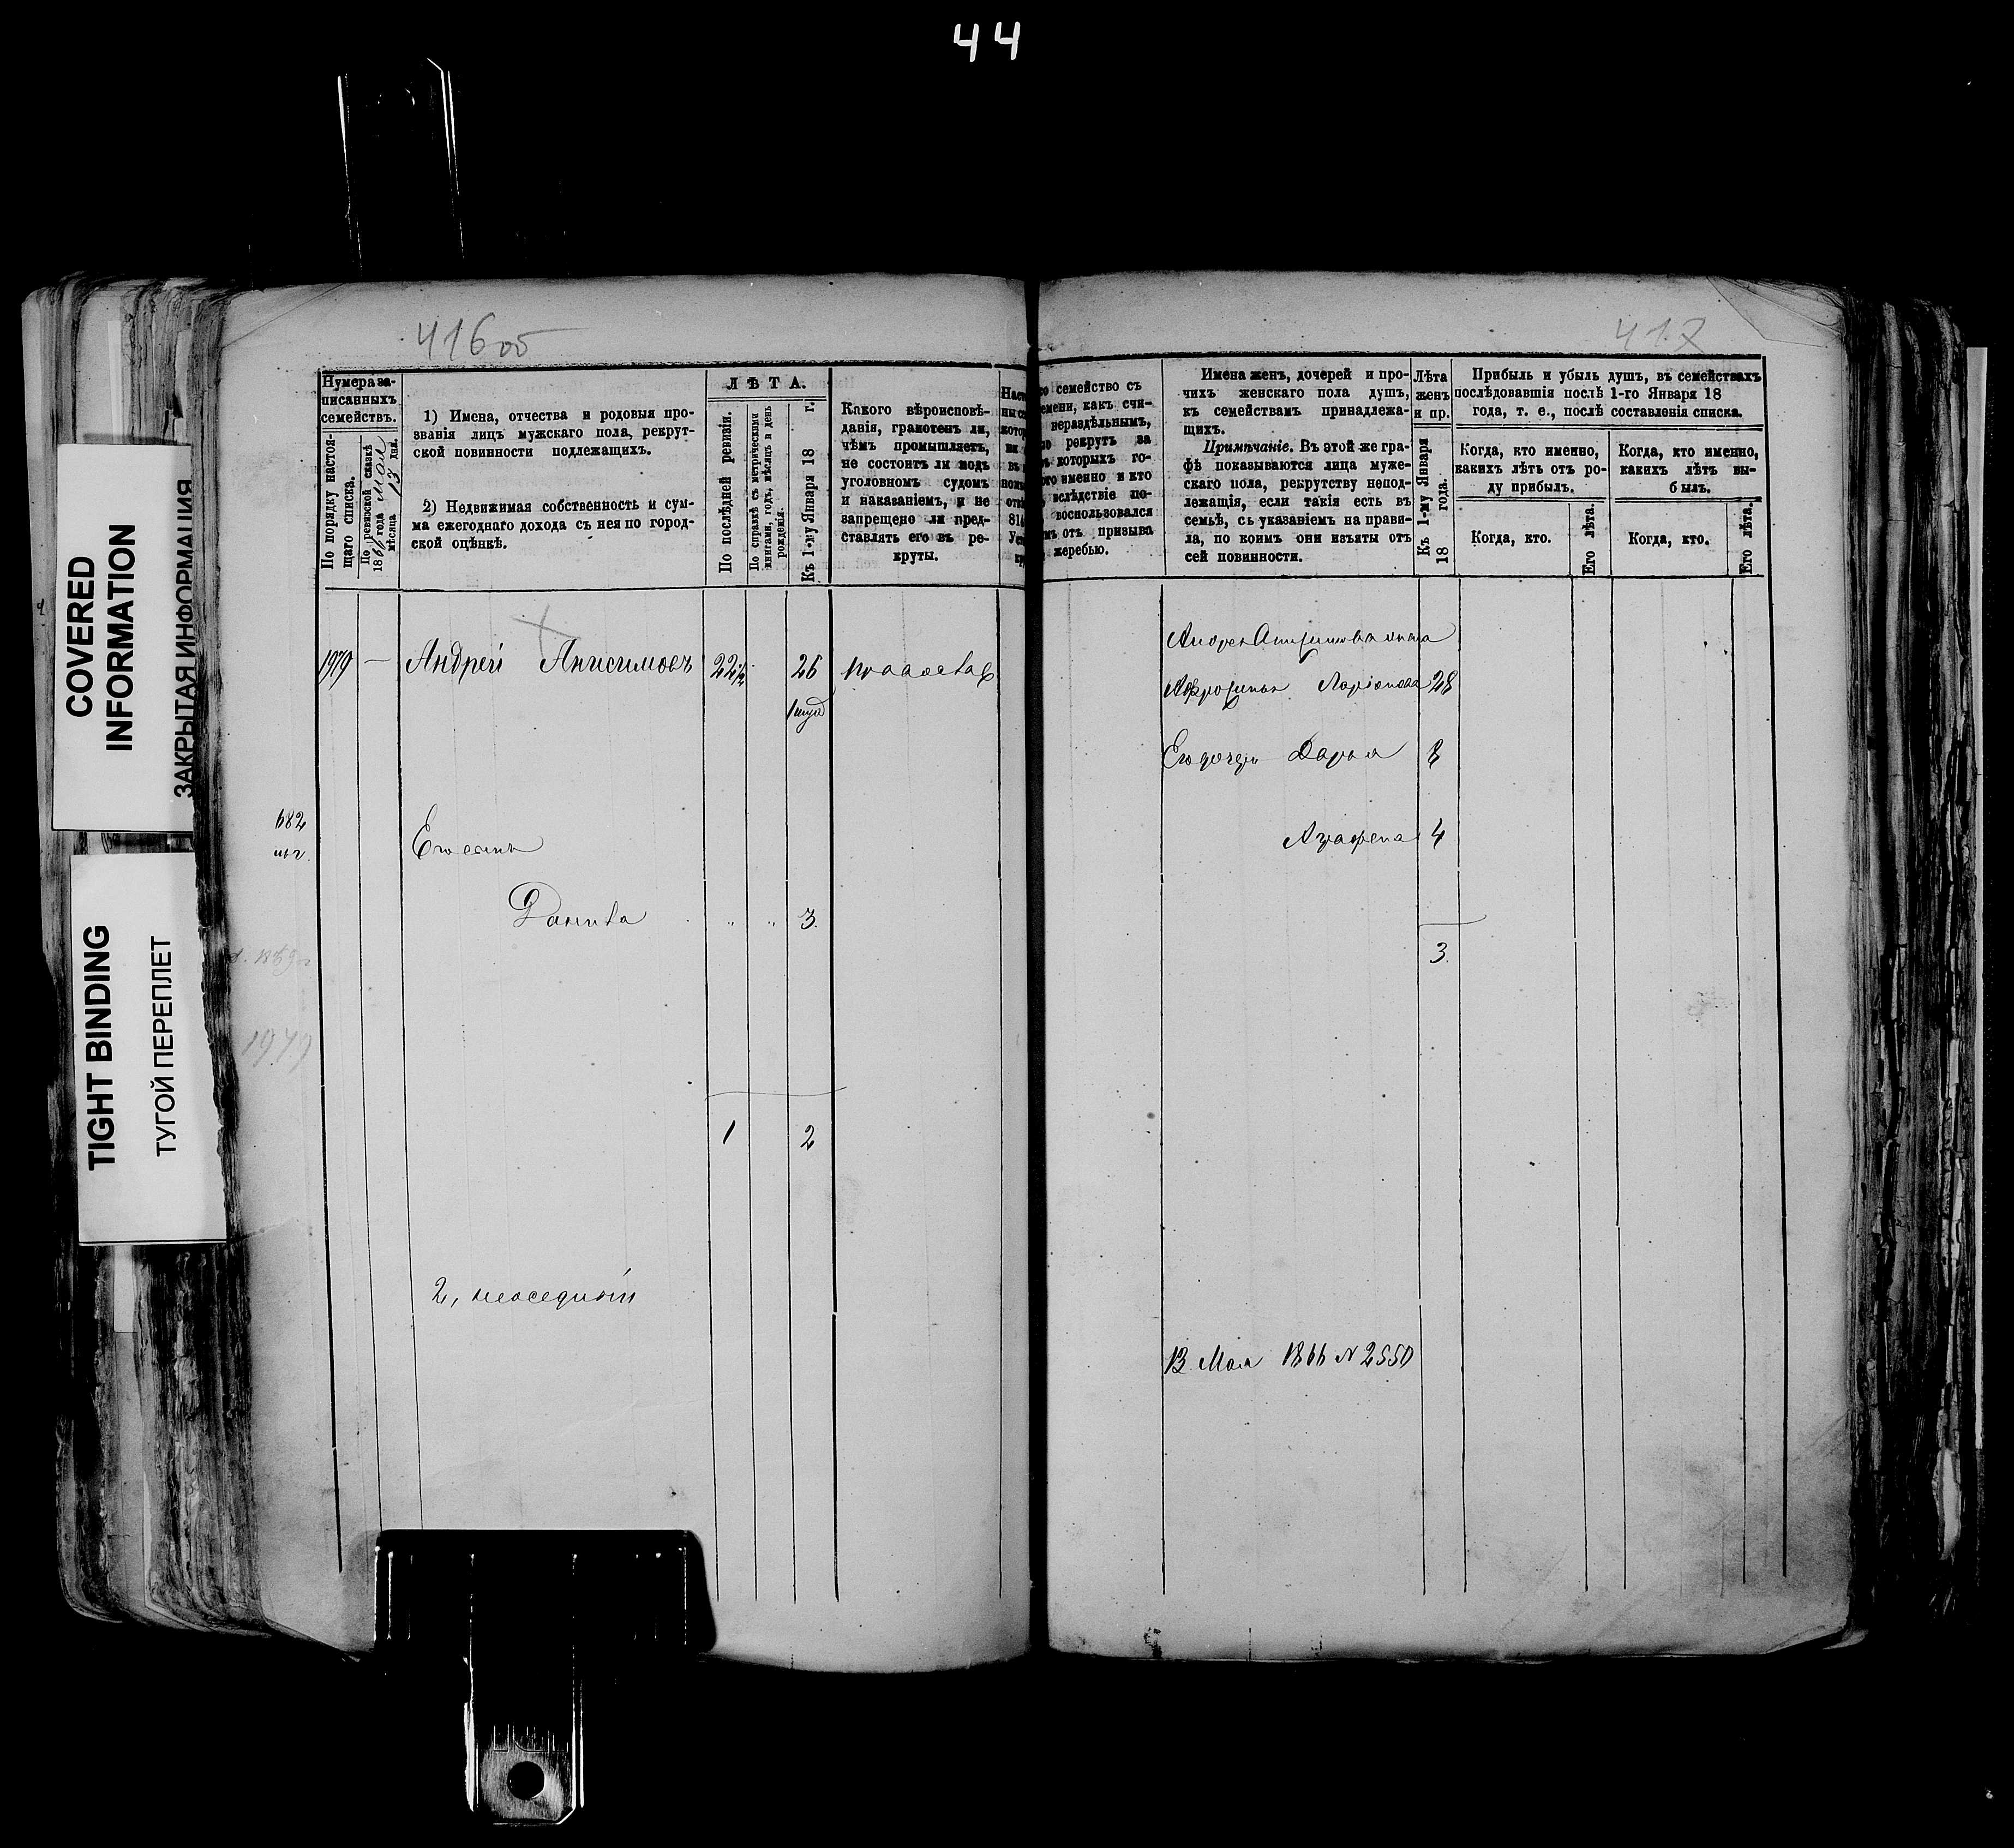 44
COVERED
INFORMATION
ЗАКРЫТАЯ ИНФОРМАЦИЯ
TIGHT BINDING
ТУГОЙ ПЕРЕПЛЕТ
416об
Нумера за-
писанныхъ
семействъ.
По порядку настоя-
щаго списка.
По ревизской сказкѣ
1866 года Мая
мѣсяца 13 дня.
1) Имена, отчества и родовыя про-
званія лицъ мужскаго пола, рекрут-
ской повинности подлежащихъ.
2) Недвижимая собственность и сум-
ма ежегоднаго дохода съ нея по город-
ской оцѣнкѣ.
ЛѢТА.
По послѣдней ревизіи.
По справкѣ съ метрическими
книгами, годъ, мѣсяцъ и день
рожденія.
Къ 1-му Января 18 г.
Какого вѣроисповѣ-
данія, грамотенъ ли,
чѣмъ промышляетъ,
не состоитъ ли подъ
уголовномъ судомъ
и наказаніемъ, и не
запрещено ли пред-
ставлять его въ ре-
круты.
1979 — Андрей Анисимовъ 22½ 26
682
Его сынъ
Данила " " 3.
1979
1 2
2, неоседлый
417
семейство съ
какъ счи-
нераздѣльнымъ,
рекрутъ за
которыхъ го-
именно и кто
вслѣдствіе по-
воспользовался
отъ призыва
жеребью.
Имена женъ, дочерей и про-
чихъ женскаго пола душъ,
къ семействамъ принадлежа-
щихъ.
Примѣчаніе. Въ этой же гра-
фѣ показываются лица муже-
скаго пола, рекрутству непод-
лежащія, если такія есть въ
семьѣ, съ указаніемъ на прави-
ла, по коимъ они изъяты отъ
сей повинности.
Лѣта
женъ
и пр.
Къ 1-му Января
18 года.
Прибыль и убыль душъ, въ семействахъ
послѣдовавшія послѣ 1-го Января 18
года, т. е., послѣ составленія списка.
Когда, кто именно,
какихъ лѣтъ отъ ро-
ду прибылъ.
Когда, кто именно,
какихъ лѣтъ вы-
былъ.
Когда, кто.
Его лѣта.
Когда, кто.
Его лѣта.
Андрея Анисимова жена
Афросинья Ларіонова 28
Его дочери Дарья 8
Аграфена 4
3.
13 Мая 1866 N 2550